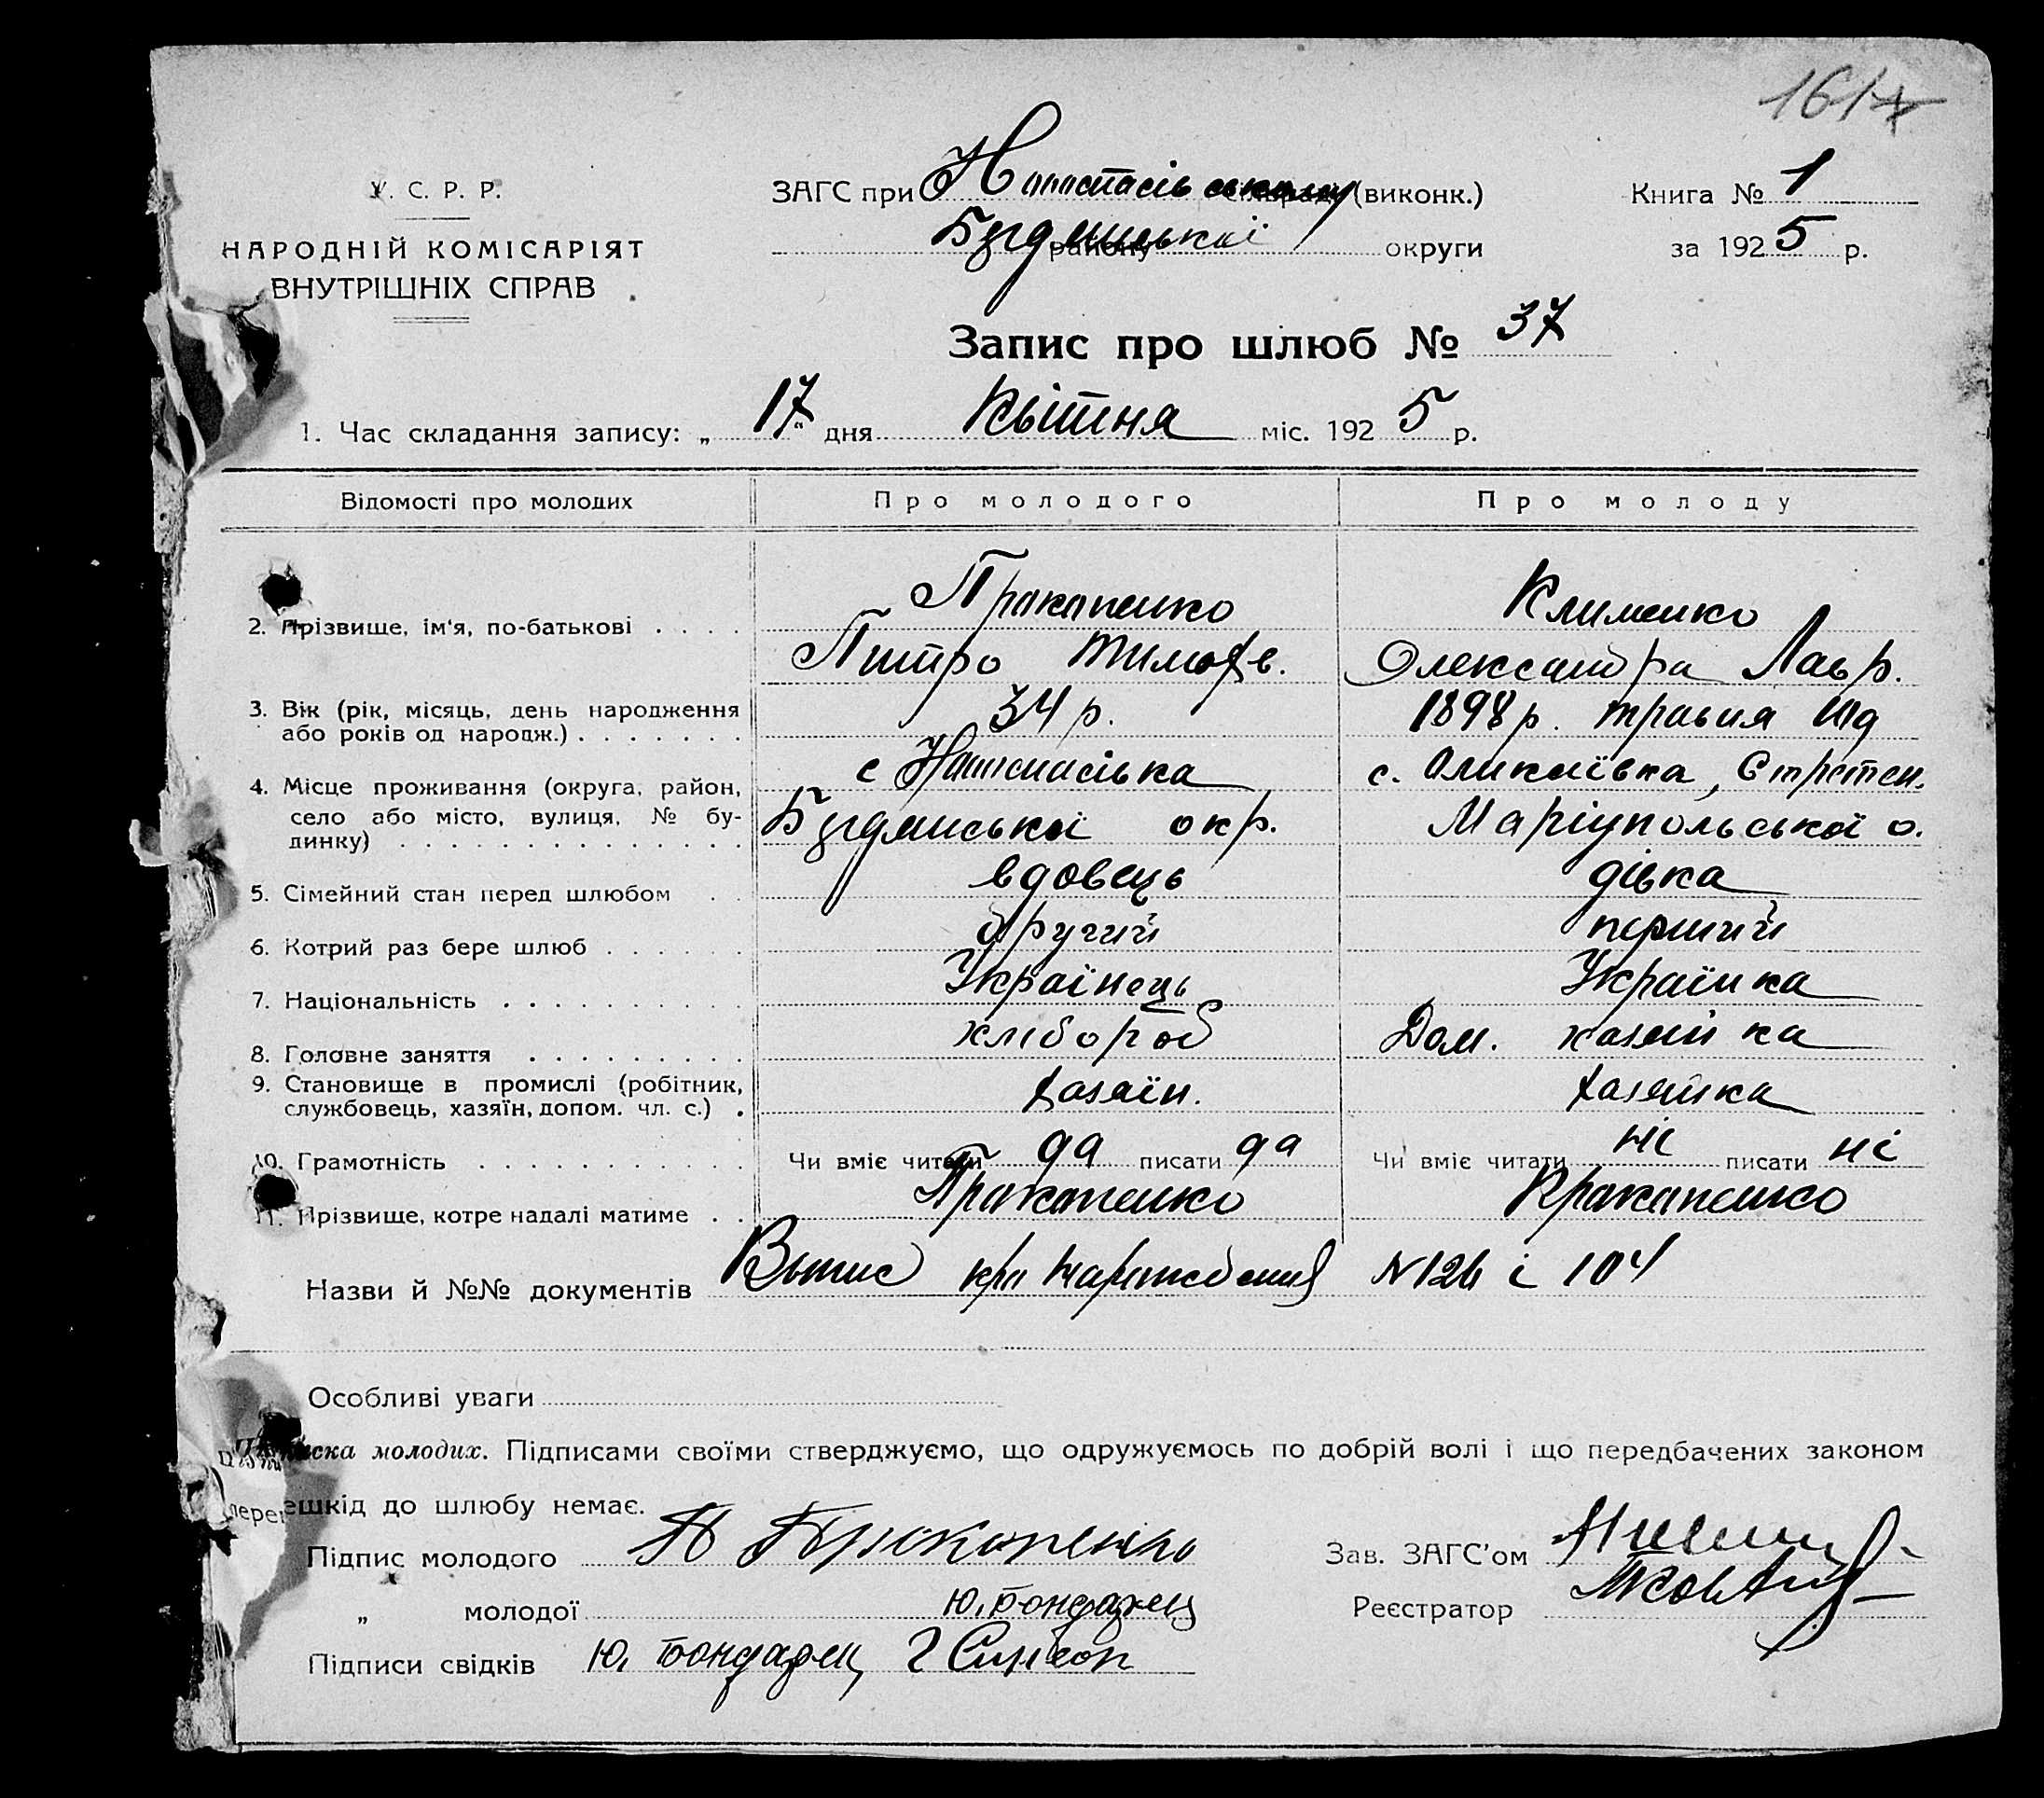 161
У. С. Р. Р.
НАРОДНІЙ КОМІСАРІЯТ
ВНУТРІШНІХ СПРАВ
ЗАГС при (виконк.)
району округи
Книга № 1
за 1925 р.
Запис про шлюб № 37
1. Час складання запису: „ 17 " дня Квітня міс. 1925 р.
Відомості про молодих Про молодого Про молоду
2. Прізвище, ім'я, по-батькові . . . . Пракапенко Клименко
Питро Тимофе. Олександра Лавр.
3. Вік (рік, місяць, день народження або років од народж.) . . . . . . . 34 р. 1898 р. травня
4. Місце проживання (округа, район, село або місто, вулиця, № будинку) . . . . . . . . . . . . . . . с окр. с. Стретен. Маріупольської о.
5. Сімейний стан перед шлюбом . . вдовець дівка
6. Котрий раз бере шлюб . . . . . . другий перший
7. Національність . . . . . . . . . . Українець Українка
8. Головне заняття . . . . . . . . . хлібороб Дом. хазяйка
9. Становище в промислі (робітник, службовець, хазяїн, допом. чл. с.) . хазяїн. хазяйка
10. Грамотність . . . . . . . . . . . . Чи вміє читати да писати да Чи вміє читати ні писати ні
11. Прізвище, котре надалі матиме . . Пракапенко Пракапенко
Назви й №№ документів N 126 і 104
Особливі уваги
Підписка молодих. Підписами своїми стверджуємо, що одружуємось по добрій волі і що передбачених законом
перешкід до шлюбу немає.
Підпис молодого П Прокопенко
Зав. ЗАГС'ом
„ молодої Ю. Бондарец
Реєстратор
Підписи свідків Ю. Бондарец Г